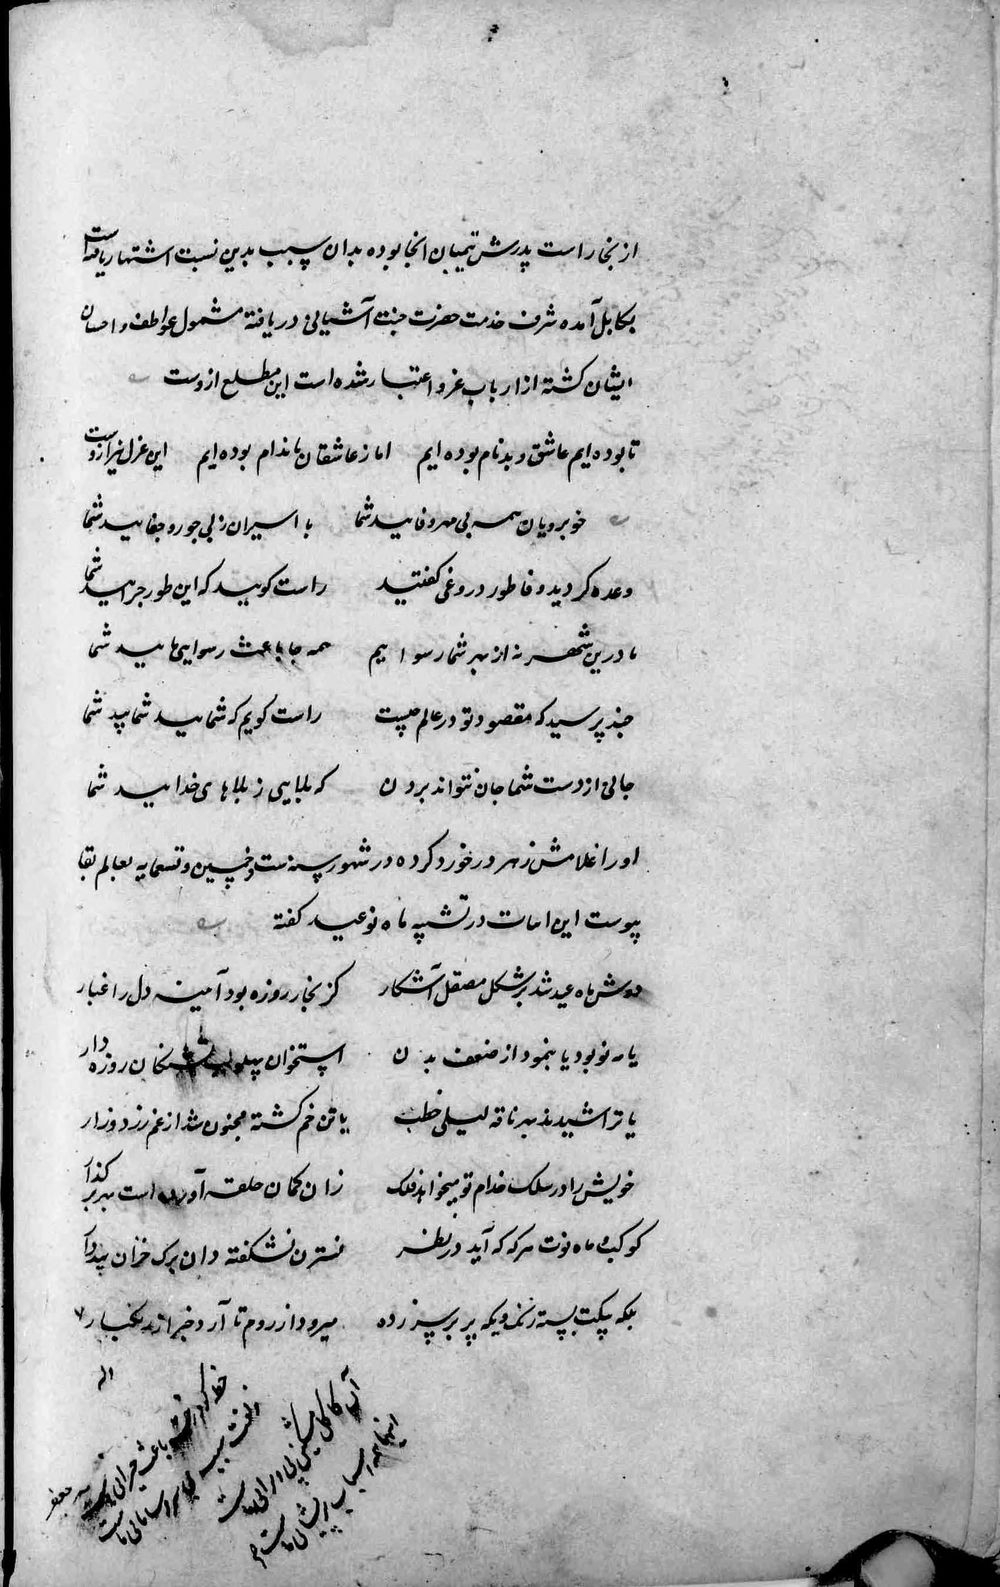 از بخاراست پدرش یتیمبان انجا بوده بدان سبب بدین نسبت اشتهار یافته است
بکابل آمده شرف خدمت حضرت جنت آشیانی دریافته مشمول عواطف و احسان
ایشان کشته از ارباب عز و اعتبار شده است این مطلع ازوست
تا بوده ایم عاشق و بدنام بوده ایم اما ز عاشقان بدنام بوده ایم این غزل نیز ازوست
خوبرویان همه بی مهر و فایید شما با اسیران ز پی جور و جفایید شما
وعده کردید وفا طور دروغی کفتید راست کویید که این طور چرایید شما
ما درین شهر نه از بهر شما رسواییم همه جا باعث رسوایی مایید شما
چند پرسید که مقصود تو در عالم چیست راست کویم که شمایید شمایید شما
جانی از دست شما جان نتواند بردن که بلایی ز بلاهای خدایید شما
او را غلامش زهر در خورد کرده در شهور سنه ست و خمسین و تسعمایه بعالم بقا
پیوست این ابیات در تشبیه ماه نو عید کفته
دوش ماه عید شد بر شکل مصقل آشکار کز بخار روزه بود آیینه دل را غبار
یا مه نو بود یا بنمود از ضعف بدن استخوان پهلوی روزه دار
یا تراشیدند بهر ناقه لیلی خطب یا تن خم کشته مجنون شد از غم زرد و زار
خویش را در سلک خدام تو میخواند فلک زان کمان حلقه آورده است بهر
کوکب و ماه نوت هر که که آید در نظر نسترن نشکفته دان برک خزان پندار
بلکه پیکت بسته زنک و یکه پر بر سر زده میرود از روم تا آرد خبر از زنکبار